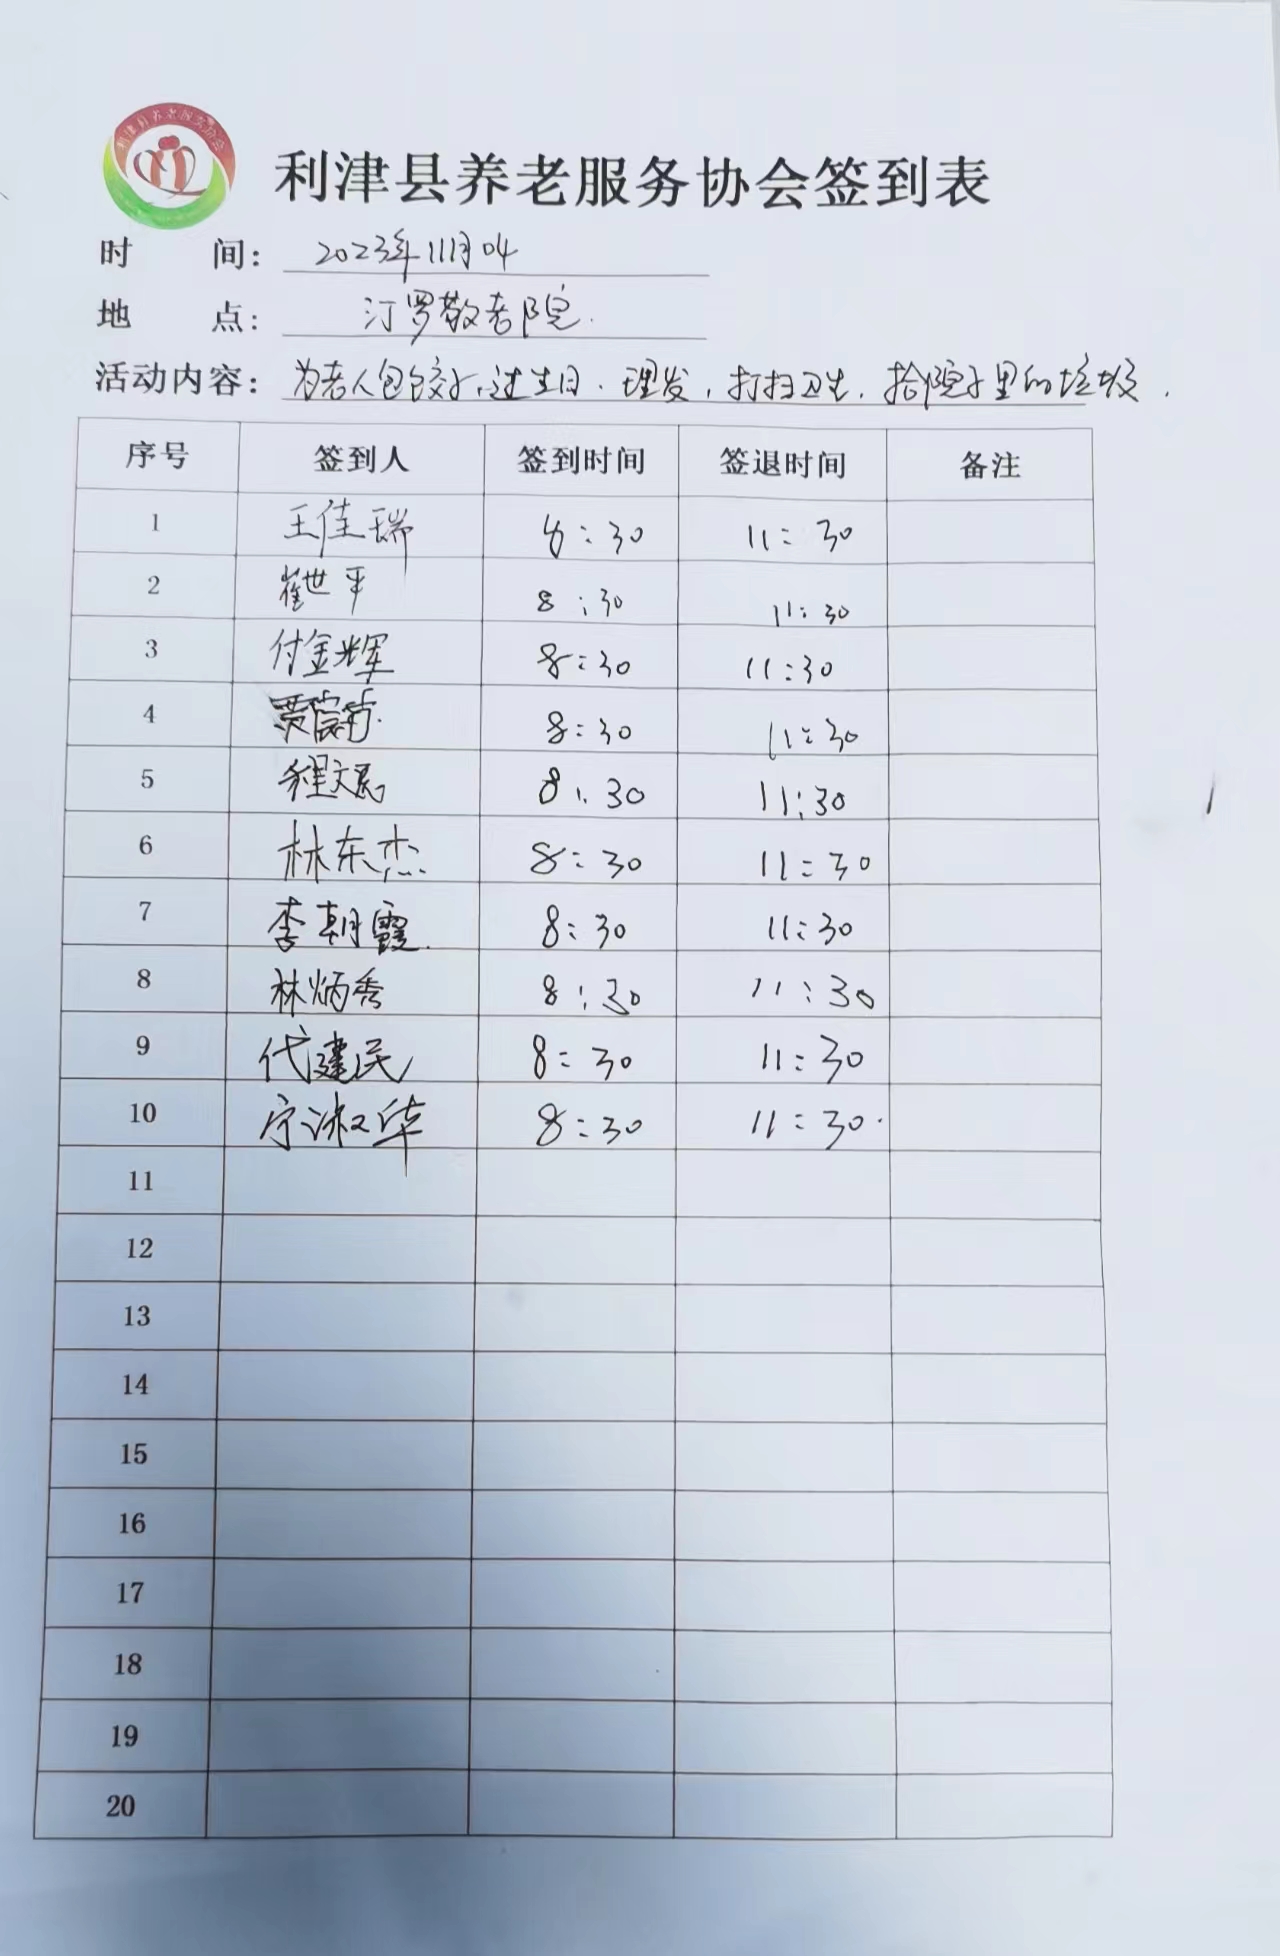 利津县养老服务协会
利津县养老服务协会签到表
时 间: 2023年11月04
地 点: 汀罗敬老院.
活动内容: 为老人包饺子,过生日、理发,打扫卫生,拾院子里的垃圾.
序号 签到人 签到时间 签退时间 备注
1 王佳瑞 8:30 11:30
2 崔世平 8:30 11:30
3 付金辉 8:30 11:30
4 贾 8:30 11:30
5 程文 8:30 11:30
6 林东杰 8:30 11:30
7 李朝霞. 8:30 11:30
8 林炳秀 8:30 11:30
9 代建民 8:30 11:30
10 宁淑华 8:30 11:30.
11
12
13
14
15
16
17
18
19
20